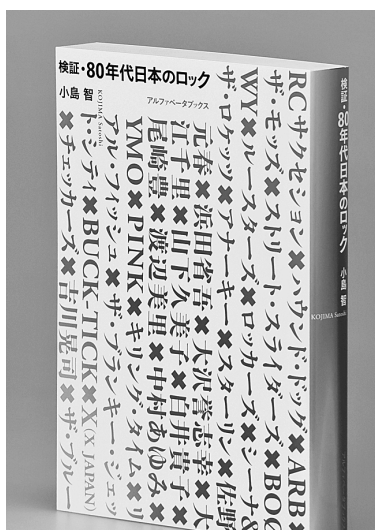 検証・80年代日本のロック
小島 智
KOJIMA Satoshi
アルファベータブックス
RCサクセション✖ハウンド・ドッグ✖ARB✖
ザ・モッズ✖ストリート・スライダーズ✖BOØ
WY✖ルースターズ✖ロッカーズ✖シーナ&
ザ・ロケッツ✖アナーキー✖スターリン✖佐野
元春✖浜田省吾✖大沢誉志幸✖大
江千里✖山下久美子✖白井貴子✖
尾崎豊✖渡辺美里✖中村あゆみ✖
YMO✖PINK✖キリング・タイム✖リ
アル・フィッシュ✖ザ・ブランキー・ジェッ
ト・シティ✖BUCK-TICK✖X(X JAPAN)
✖チェッカーズ✖吉川晃司✖ザ・ブルー
検証・80年代日本のロック
小島 智
KOJIMA Satoshi